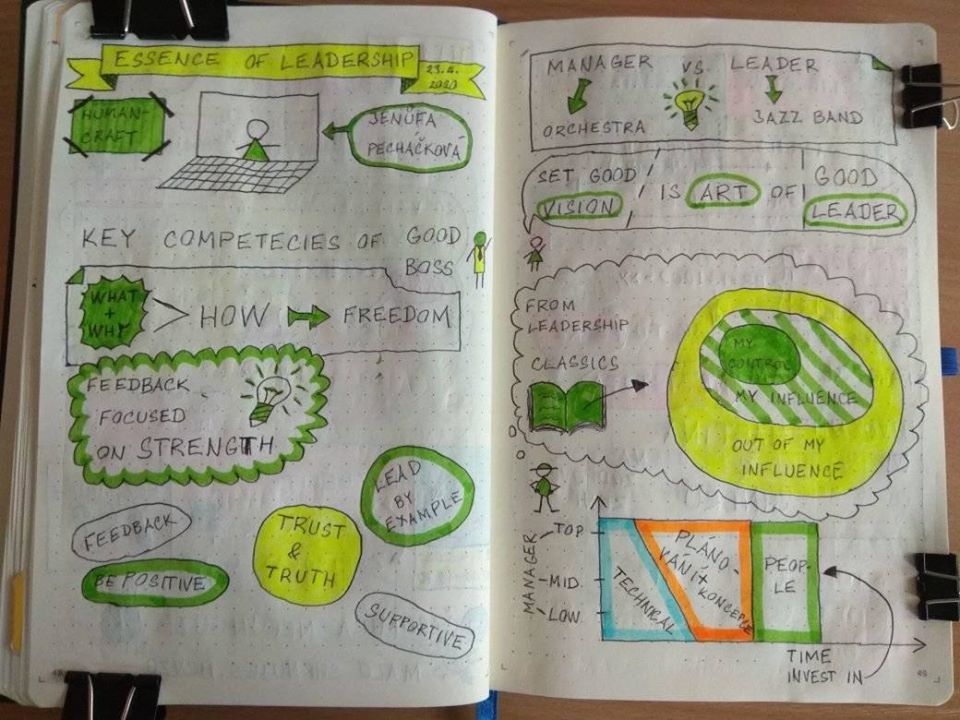 ESSENCE OF LEADERSHIP
23.4.
2020
HUMAN-
CRAFT
JENŮFA
PECHÁČKOVÁ
KEY COMPETECIES OF GOOD
BOSS
WHAT
+
WHY
> HOW → FREEDOM
FEEDBACK
FOCUSED
ON STRENGTH
LEAD
BY
EXAMPLE
FEEDBACK
TRUST
&
TRUTH
BE POSITIVE
SUPPORTIVE
MANAGER VS. LEADER
ORCHESTRA
JAZZ BAND
SET GOOD
VISION
IS ART OF
GOOD
LEADER
FROM
LEADERSHIP
CLASSICS
MY
CONTROL
MY INFLUENCE
OUT OF MY
INFLUENCE
MANAGER
TOP
MID
LOW
TECHNICAL
PLÁNO-
VÁNÍ +
KONCEPCE
PEOP-
LE
TIME
INVEST IN